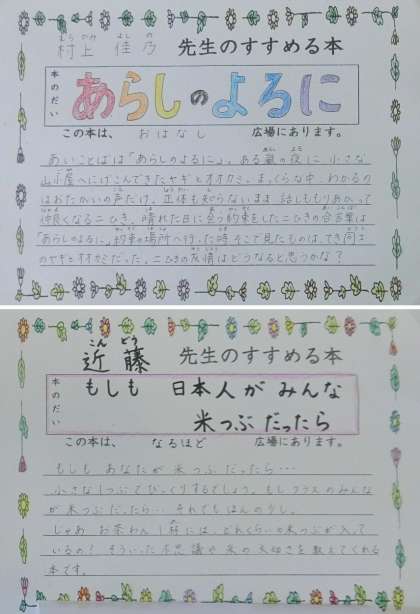 むらかみ よしの
村上 佳乃 先生のすすめる本
本のだい
あらしのよるに
この本は、 おはなし 広場にあります。
あいことばは「あらしのよるに」。ある嵐の夜に、小さな
山小屋へにげこんできたヤギとオオカミ。まっくらな中、わかるの
はおたがいの声だけ。正体も知らないまま 話しももりあがって
仲良くなる二ひき。晴れた日に会う約束をした二ひきの合言葉は
「あらしのよるに」。約束の場所へ行った時、そこで見たものは、てき同士
のヤギとオオカミだった。二ひきの友情はどうなると思うかな？
こん どう
近 藤 先生のすすめる本
本のだい
もしも 日本人が みんな
米つぶ だったら
この本は、 なるほど 広場にあります。
もしも あなたが 米つぶ だったら…
小さな1つぶで びっくりするでしょう。もし クラスのみんな
が 米つぶ だったら… それでも ほんの少し。
じゃあ お茶わん1杯には、どれくらいの米つぶが入って
いるの？ そういった不思議や 米の大切さを教えてくれる
本です。